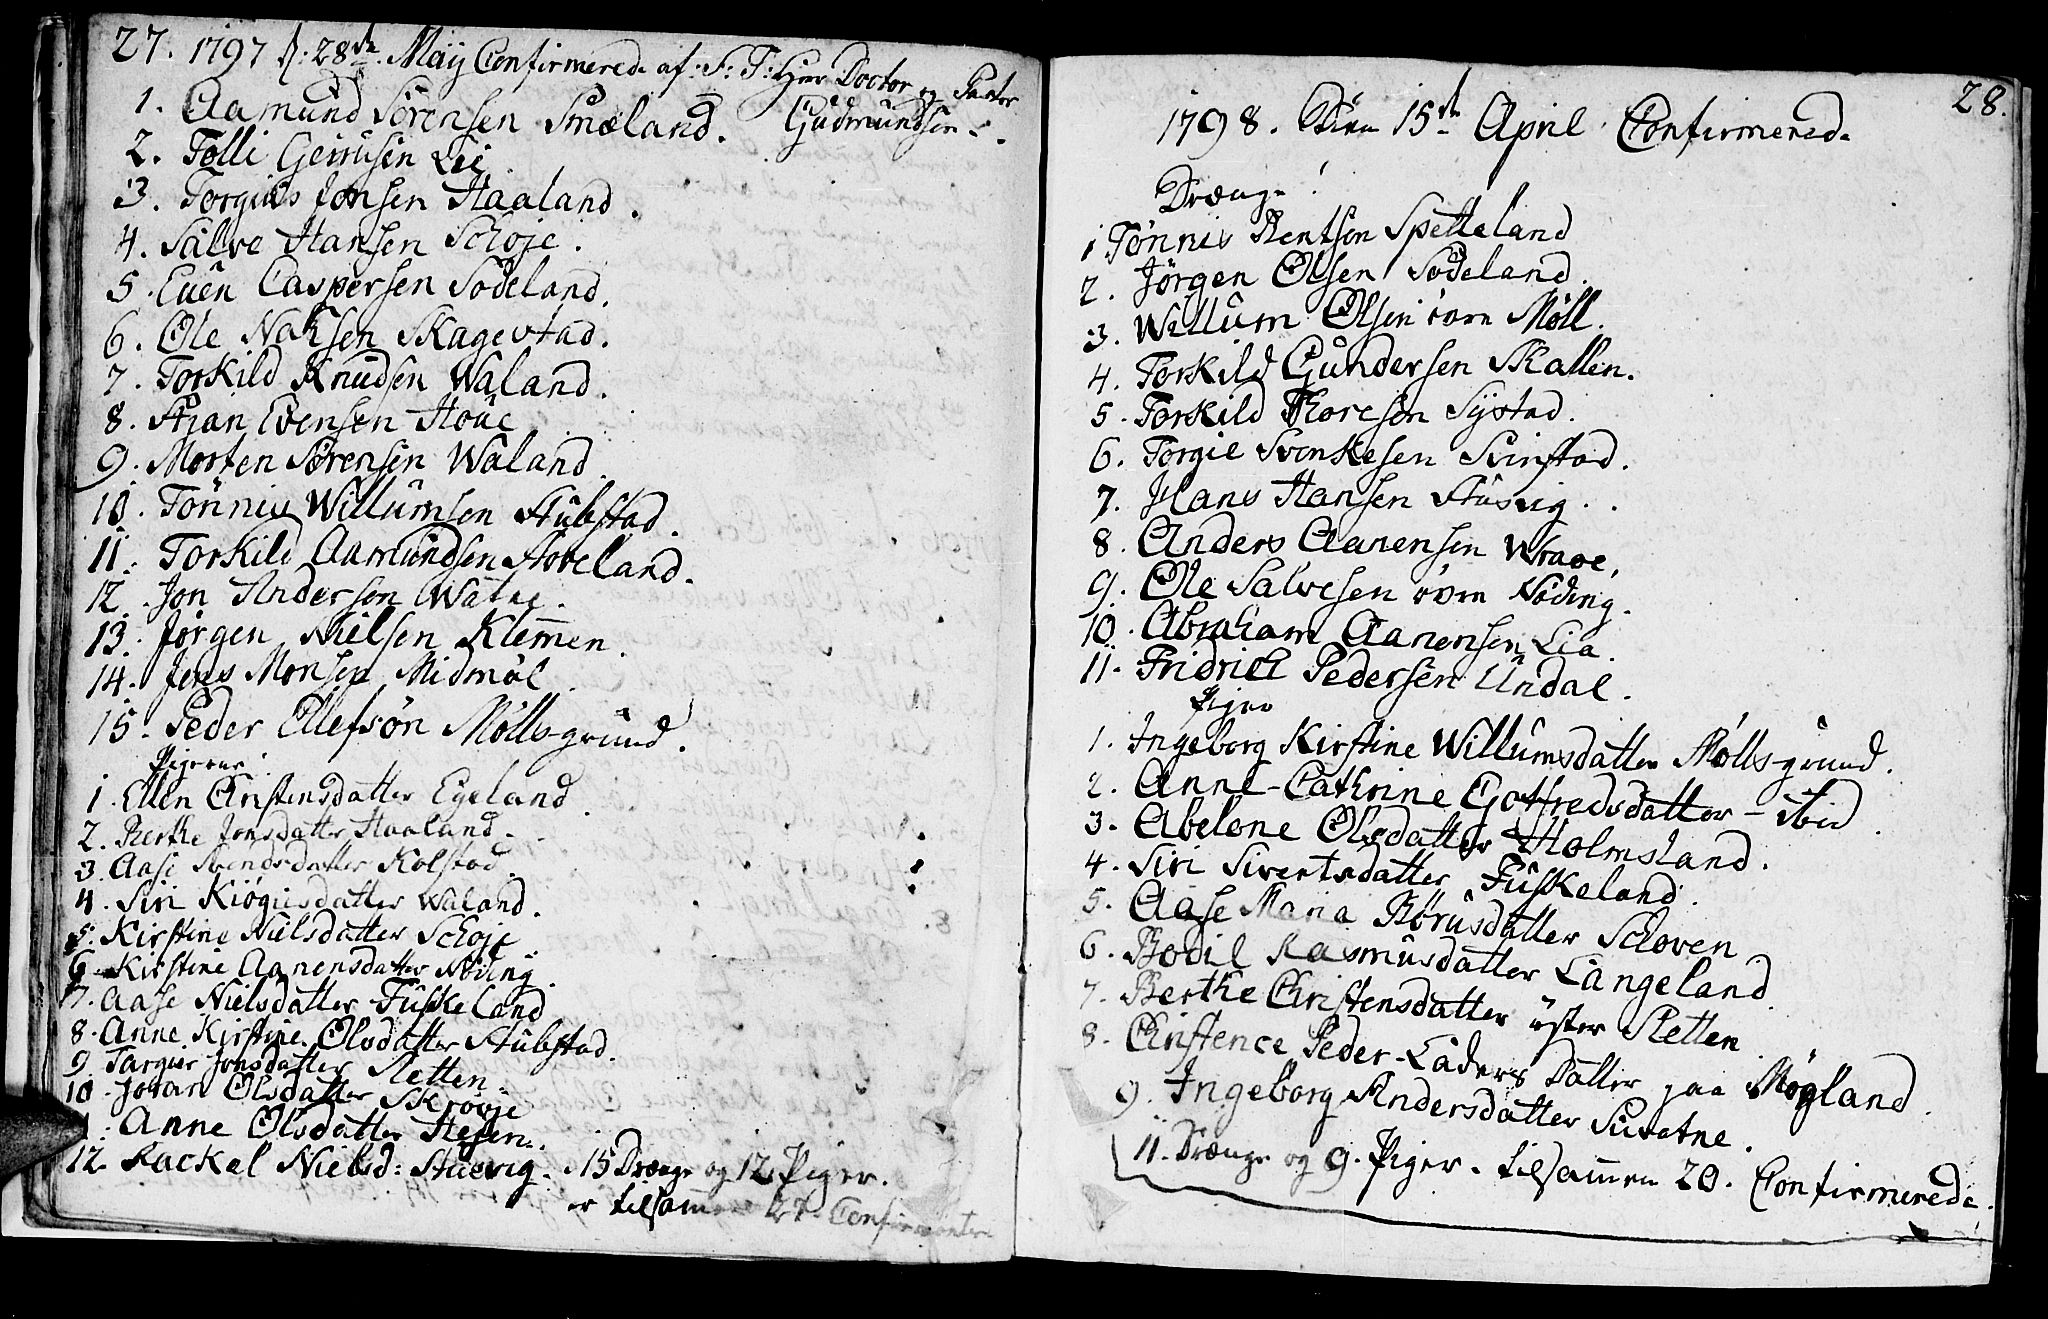 27. 1797 d: 28de Maij Confirmerede af: S: T: Herr Doctor og Pastor
Gudmundsen.
1. Aamund Sörensen Smæland.
2. Tolli Gerrusen Lie
3. Torgius Jonsen Haaland.
4. Salve Hansen Schoje.
5. Euen Caspersen Sodeland.
6. Ole Nahsen Skagestad.
7. Torkild Knudsen Waland.
8. Stian Evensen Houe
9. Morten Sørensen Waland.
10. Tönnis Willumsen Stubstad.
11. Torkild Aamundsen Hoveland.
12. Jon Andersen Watne.
13. Jørgen Nielsen Klemen.
14. Jens Monsen Midmøl
15. Peder Ellefsön Mølls-grund.
Pigerne:
1. Ellen Christensdatter Egeland
2. Berthe Jonsdatter Haaland.
3. Aase Svendsdatter Kolstad.
4. Siri Kiøgusdatter Waland.
5. Kirstine Nielsdatter Schoje
6. Kirstine Aanensdatter Nöding
7. Aase Nielsdatter Fuskeland
8. Anne Kirstine Olsdatter Stubstad.
9. Targier Jonsdatter Sletten.
10. Joran Olsdatter Skrövje
11. Anne Olsdatter Hesen.
12. Rackel Nielsd: Stusvig. 15 Drænge og 12 Piger.
er tilsamen 27. Confirmanter
28.
1798. Den 15de April Confirmerede
Drænge:
1. Tönnis Bentsen Spetteland
2. Jörgen Olsen Sodeland.
3. Willum Olsen övre Möll.
4. Torkild Gundersen Skallen.
5. Torkild Thoresen Systad.
6. Torgie Svenkesen Svinstad.
7. Hans Hansen Stusvig.
8. Anders Aanensen Wraae.
9. Ole Salvesen övre Nöding.
10. Abraham Aanensen Lia.
11. Fridrich Pedersen Undal.
Piger
1. Ingeborg Kirstine Willumsdatter Mölls-grund.
2. Anne-Cathrine Gotfredsdatter - ibid.
3. Abelone Olsdatter Holmsland.
4. Siri Sivertsdatter Fuskeland.
5. Aase Maria Börusdatter Schoven
6. Bodil Rasmusdatter Langeland
7. Berthe Christensdatter üster Sletten
8. Christence Peder-Laders Datter paa Mögland.
9. Ingeborg Andersdatter Suvatne.
11. Drænge og 9. Piger. tilsammen 20. Confirmerede.